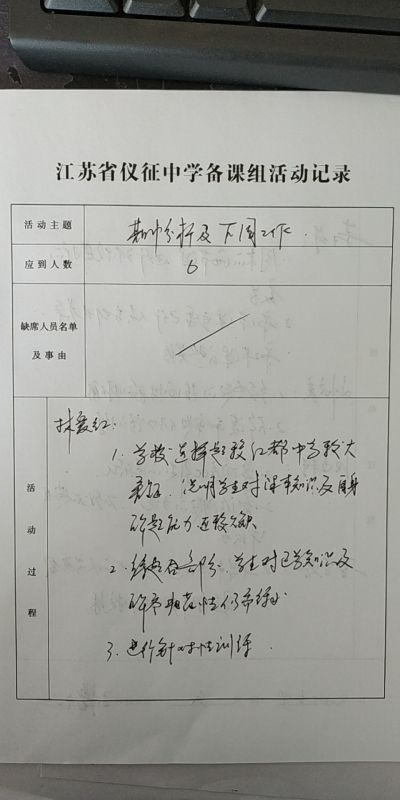 江苏省仪征中学备课组活动记录
活动主题 期中分析及下周工作.
应到人数 6
缺席人员名单
及事由
活动过程
林爱红:
1. 学校选择题较江都中学较大
差距. 说明学生对课本知识及自身
解题能力还较欠缺
2. 综合题部分, 学生对已学知识及
解
3. 进行针对性训练.